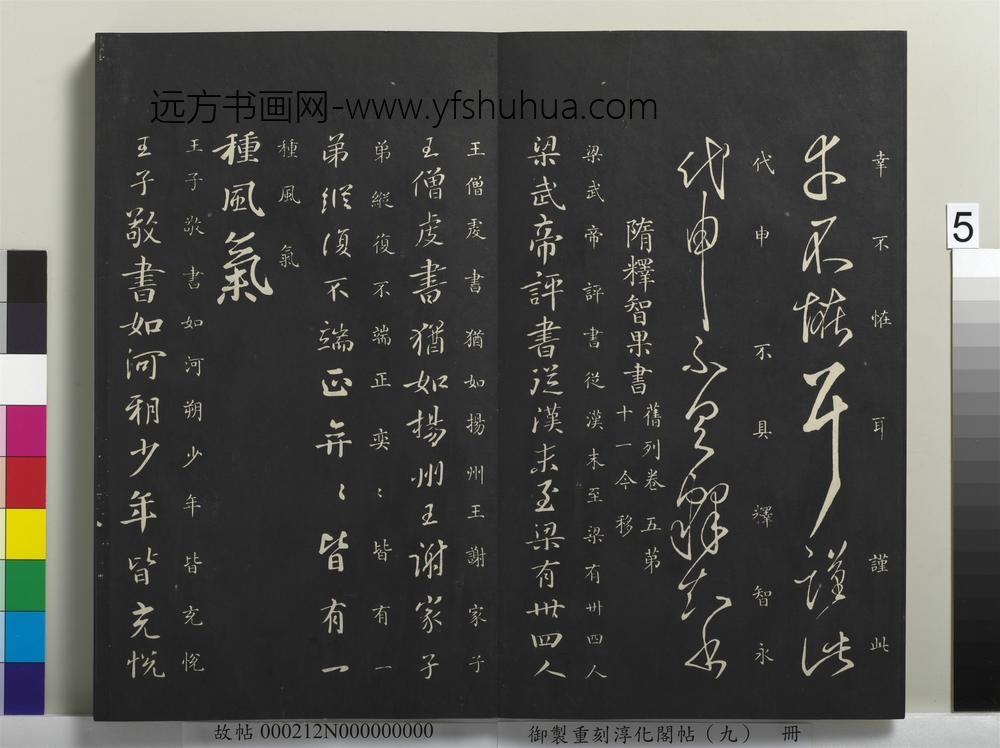 远方书画网-www.yfshuhua.com
幸不恠耳謹此
幸不恠耳謹此
代申不具釋智永
代申不具釋智永
隋釋智果書
舊列卷五第
十一今移
梁武帝評書從漢末至梁有卅四人
梁武帝評書從漢末至梁有卅四人
王僧虔書猶如揚州王謝家子
王僧虔書猶如揚州王謝家子
弟縱復不端正奕〻皆有一
弟縱復不端正奕〻皆有一
種風氣
種風氣
王子敬書如河朔少年皆充悅
王子敬書如河朔少年皆充悅
5
故帖 000212N000000000
御製重刻淳化閣帖（九） 冊